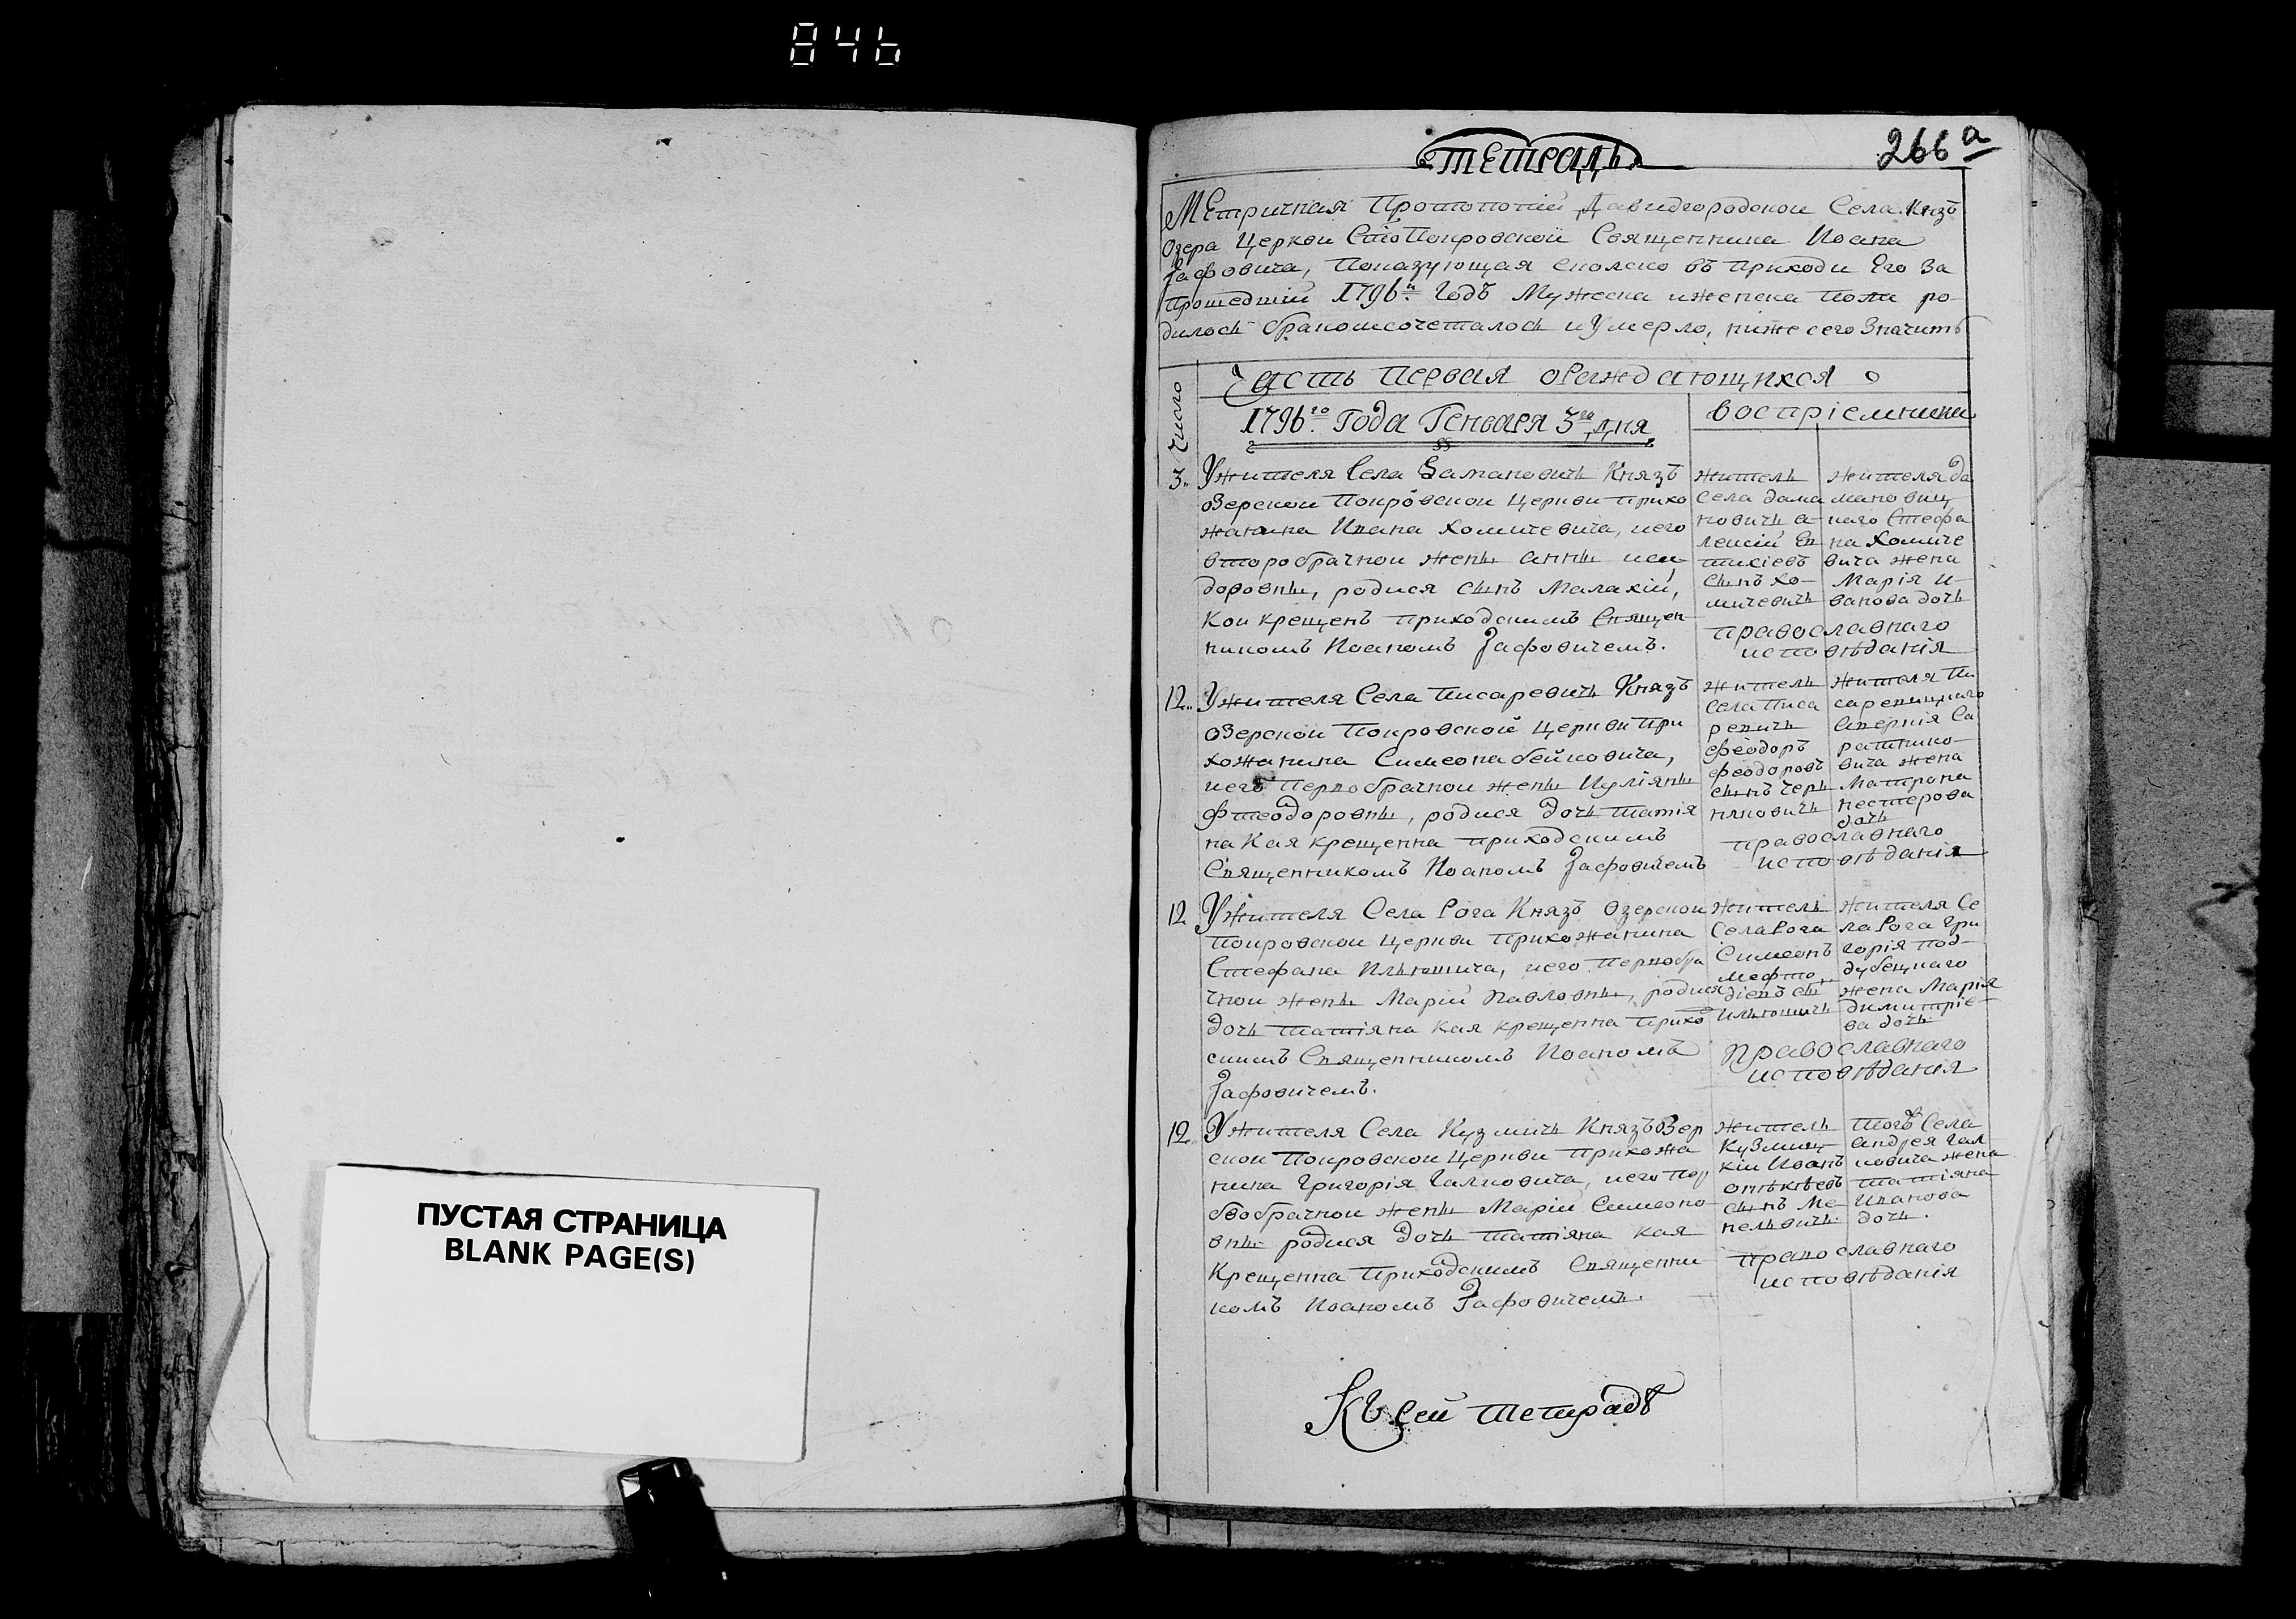 846
ПУСТАЯ СТРАНИЦА
BLANK PAGE(S)
266 а
ТЕТРАДЬ
Метричная Протопопіи Давидгородской Села Князъ
Озера Церкви Сто Покровской Священника Иоана
Гафовича, Показующая сколско въ приходи Его За
Прошедшій 1796й Годъ Мужеска иженска Пола ро-
дилось бракомсочеталось иУмерло, ниже сего Значить
Число
Часть Первая оРаждающихся
1796го Года Генваря 3го дня
воспріемники
3
Ужителя Села Даманович Князъ
Озерской Покровской Церкви прихо
жанина Ивана Хомичевича, иего
второбрачной жены анны иси
доровны, родися сынъ Малахіи,
Кои крещенъ приходскимъ Священ-
никомъ Иоаномъ Гафовичемъ.
житель
села дама
новичь а-
лексій Ев
тихіевъ
сынъ хо-
мичевичь
жителя да
мановиц
каго Стефа
на Хомиче
вича жена
Марія и-
ванова дочь
православнаго
исповѣданія
12
Ужителя Села Писаревичь Князъ
Озерской Покровской Церкви При
хожанина Симеона бейковича,
иего Первобрачной жены Иуліяны
Фтеодоровны, родися дочь татія
на Кая крещенна приходскимъ
Священникомъ Иоаномъ Гафовичемъ
житель
села Писа
ревичь
феодоръ
феодоровъ
сынъ черн
няковичь
жителя Пи
саревицкаго
Аверкія Са
ратнико-
вича жена
Матрона
нестерова
дочь
православнаго
исповѣданія
12
Ужителя Села Рога Князъ Озерской
Покровской Церкви прихожанина
Стефана Ильюшича, иего первобра
чной жены Маріи Павловны, родися
дочь татіяна кая крещенна прихо
скимъ Священникомъ Иоаномъ
Гафовичемъ.
житель
Села Рога
Симеонъ
мефто
діевъ сы
Ильюшичь
жителя Се
ла Рога Гри
горія под-
дубецкаго
жена Марія
димитріе-
ва дочь
православнаго
исповѣданія
12
Ужителя Села Кузмичь КнязъОзер
ской Покровской Церкви прихожа
нина Григорія Галковича, иего Пер
вобрачной жены Маріи Симеоно
вны родися дочь татіяна кая
Крещенна Приходскимъ Священни
комъ Иоаномъ Гафовичемъ.
житель
Кузмиц
кіи Иоанъ
сынъ Ме-
того Села
андрея Гал
ковича жена
татіяна
Иванова
дочь.
православнаго
исповѣданія
Къ сей тетрадѣ